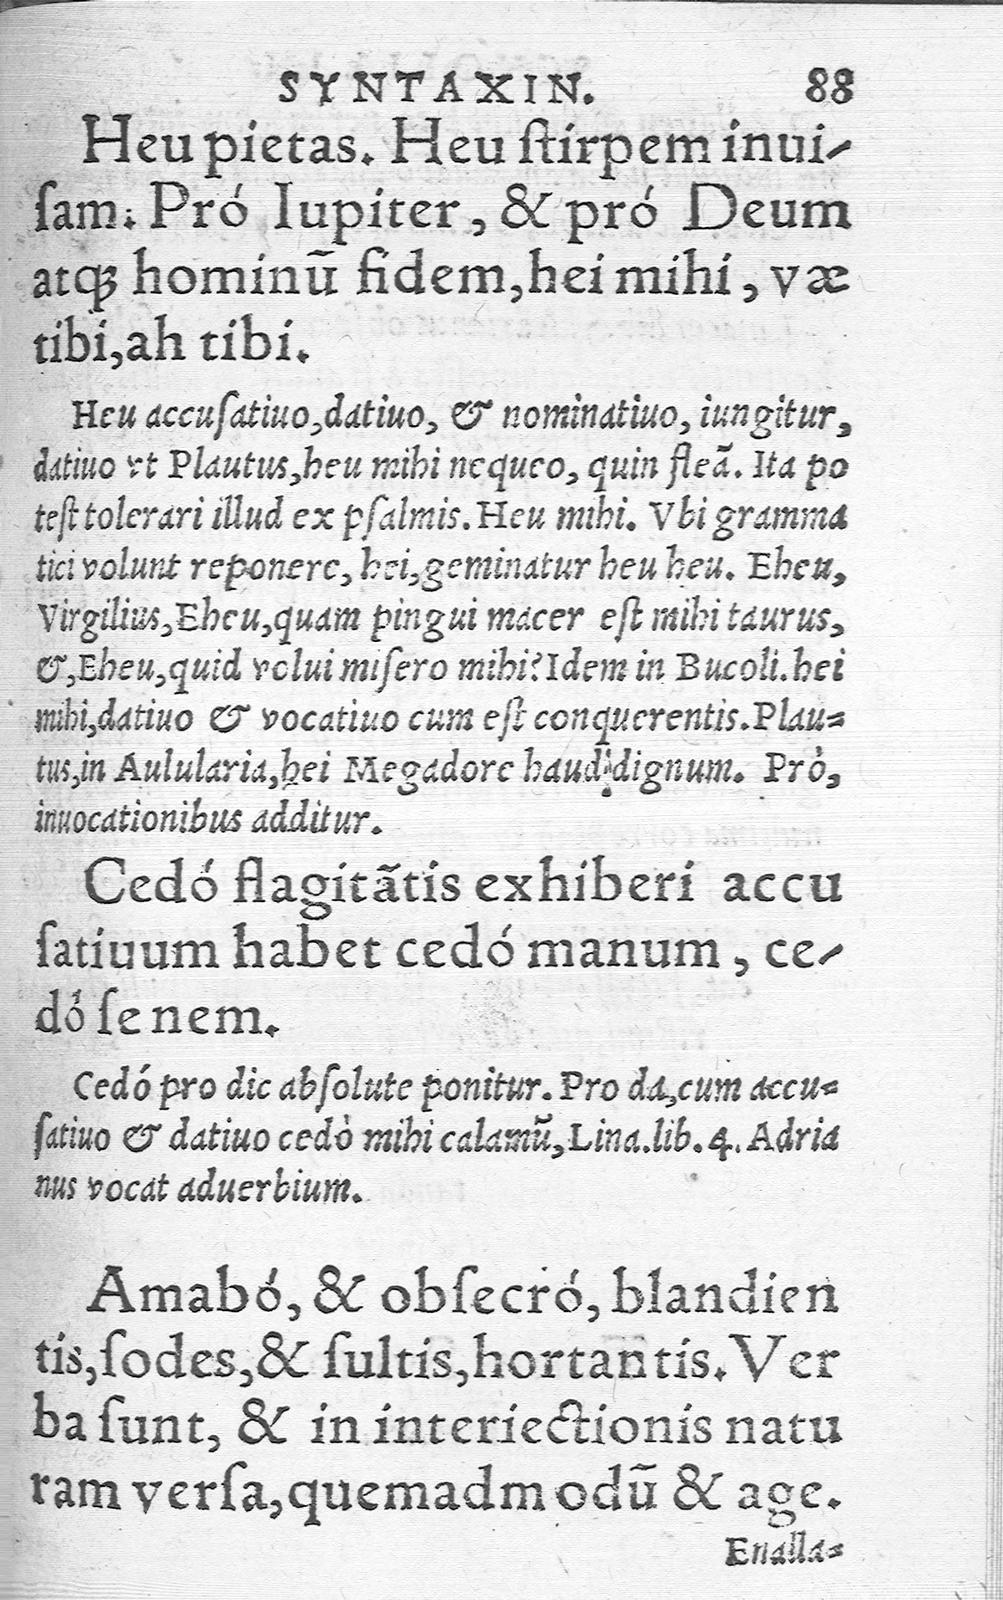 SYNTAXIN. 88
Heu pietas. Heu ſtirpem inui-
ſam. Pró Iupiter, & pró Deum
atqꝫ hominū fidem, hei mihi, væ
tibi, ah tibi.
Heu accuſatiuo, datiuo, & nominatiuo, iungitur,
datiuo vt Plautus, heu mihi nequeo, quin fleā. Ita po
teſt tolerari illud ex pſalmis. Heu mihi. Vbi gramma
tici volunt reponere, hei, geminatur heu heu. Eheu,
Virgilius, Eheu, quam pingui macer eſt mihi taurus,
&, Eheu, quid volui miſero mihi? Idem in Bucoli. hei
mihi, datiuo & vocatiuo cum eſt conquerentis. Plau=
tus, in Aulularia, hei Megadore haud dignum. Prò,
inuocationibus additur.
Cedó flagitātis exhiberi accu
ſatiuum habet cedó manum, ce-
dó ſenem.
Cedó pro dic abſolute ponitur. Pro da, cum accu=
ſatiuo & datiuo cedò mihi calamū, Lina. lib. 4. Adria
nus vocat aduerbium.
Amabó, & obſecró, blandien
tis, ſodes, & ſultis, hortantis. Ver
ba ſunt, & in interiectionis natu
ram verſa, quemadmodū & age.
Enalla=